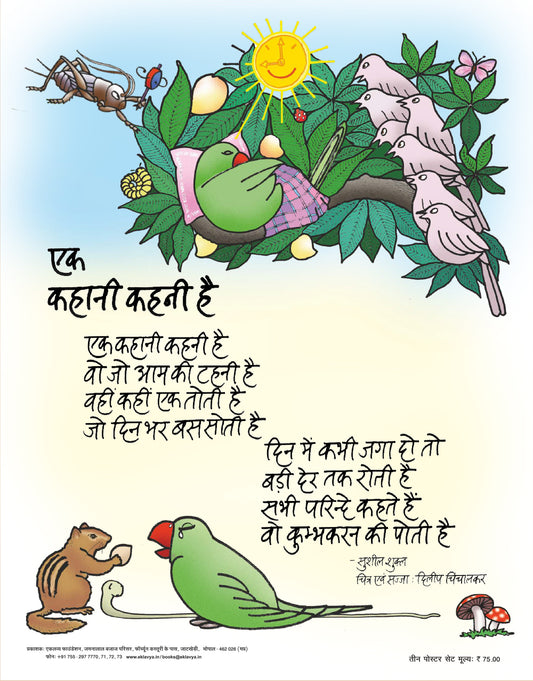 एक
कहानी कहनी है
एक कहानी कहनी है
वो जो आम की टहनी है
वहीं कहीं एक तोती है
जो दिन भर बस सोती है
दिन में कभी जगा दो तो
बड़ी देर तक रोती है
सभी परिन्दे कहते हैं
वो कुम्भकरन की पोती है
- सुशील शुक्ल
चित्र एवं सज्जा : दिलीप चिंचालकर
प्रकाशक: एकलव्य फाउंडेशन, जमनालाल बजाज परिसर, फॉर्च्यून कस्तूरी के पास, जाटखेड़ी, भोपाल - 462 026 (मप्र)
फोन: +91 755 - 297 7770, 71, 72, 73 www.eklavya.in/books@eklavya.in
तीन पोस्टर सेट मूल्य: ₹ 75.00